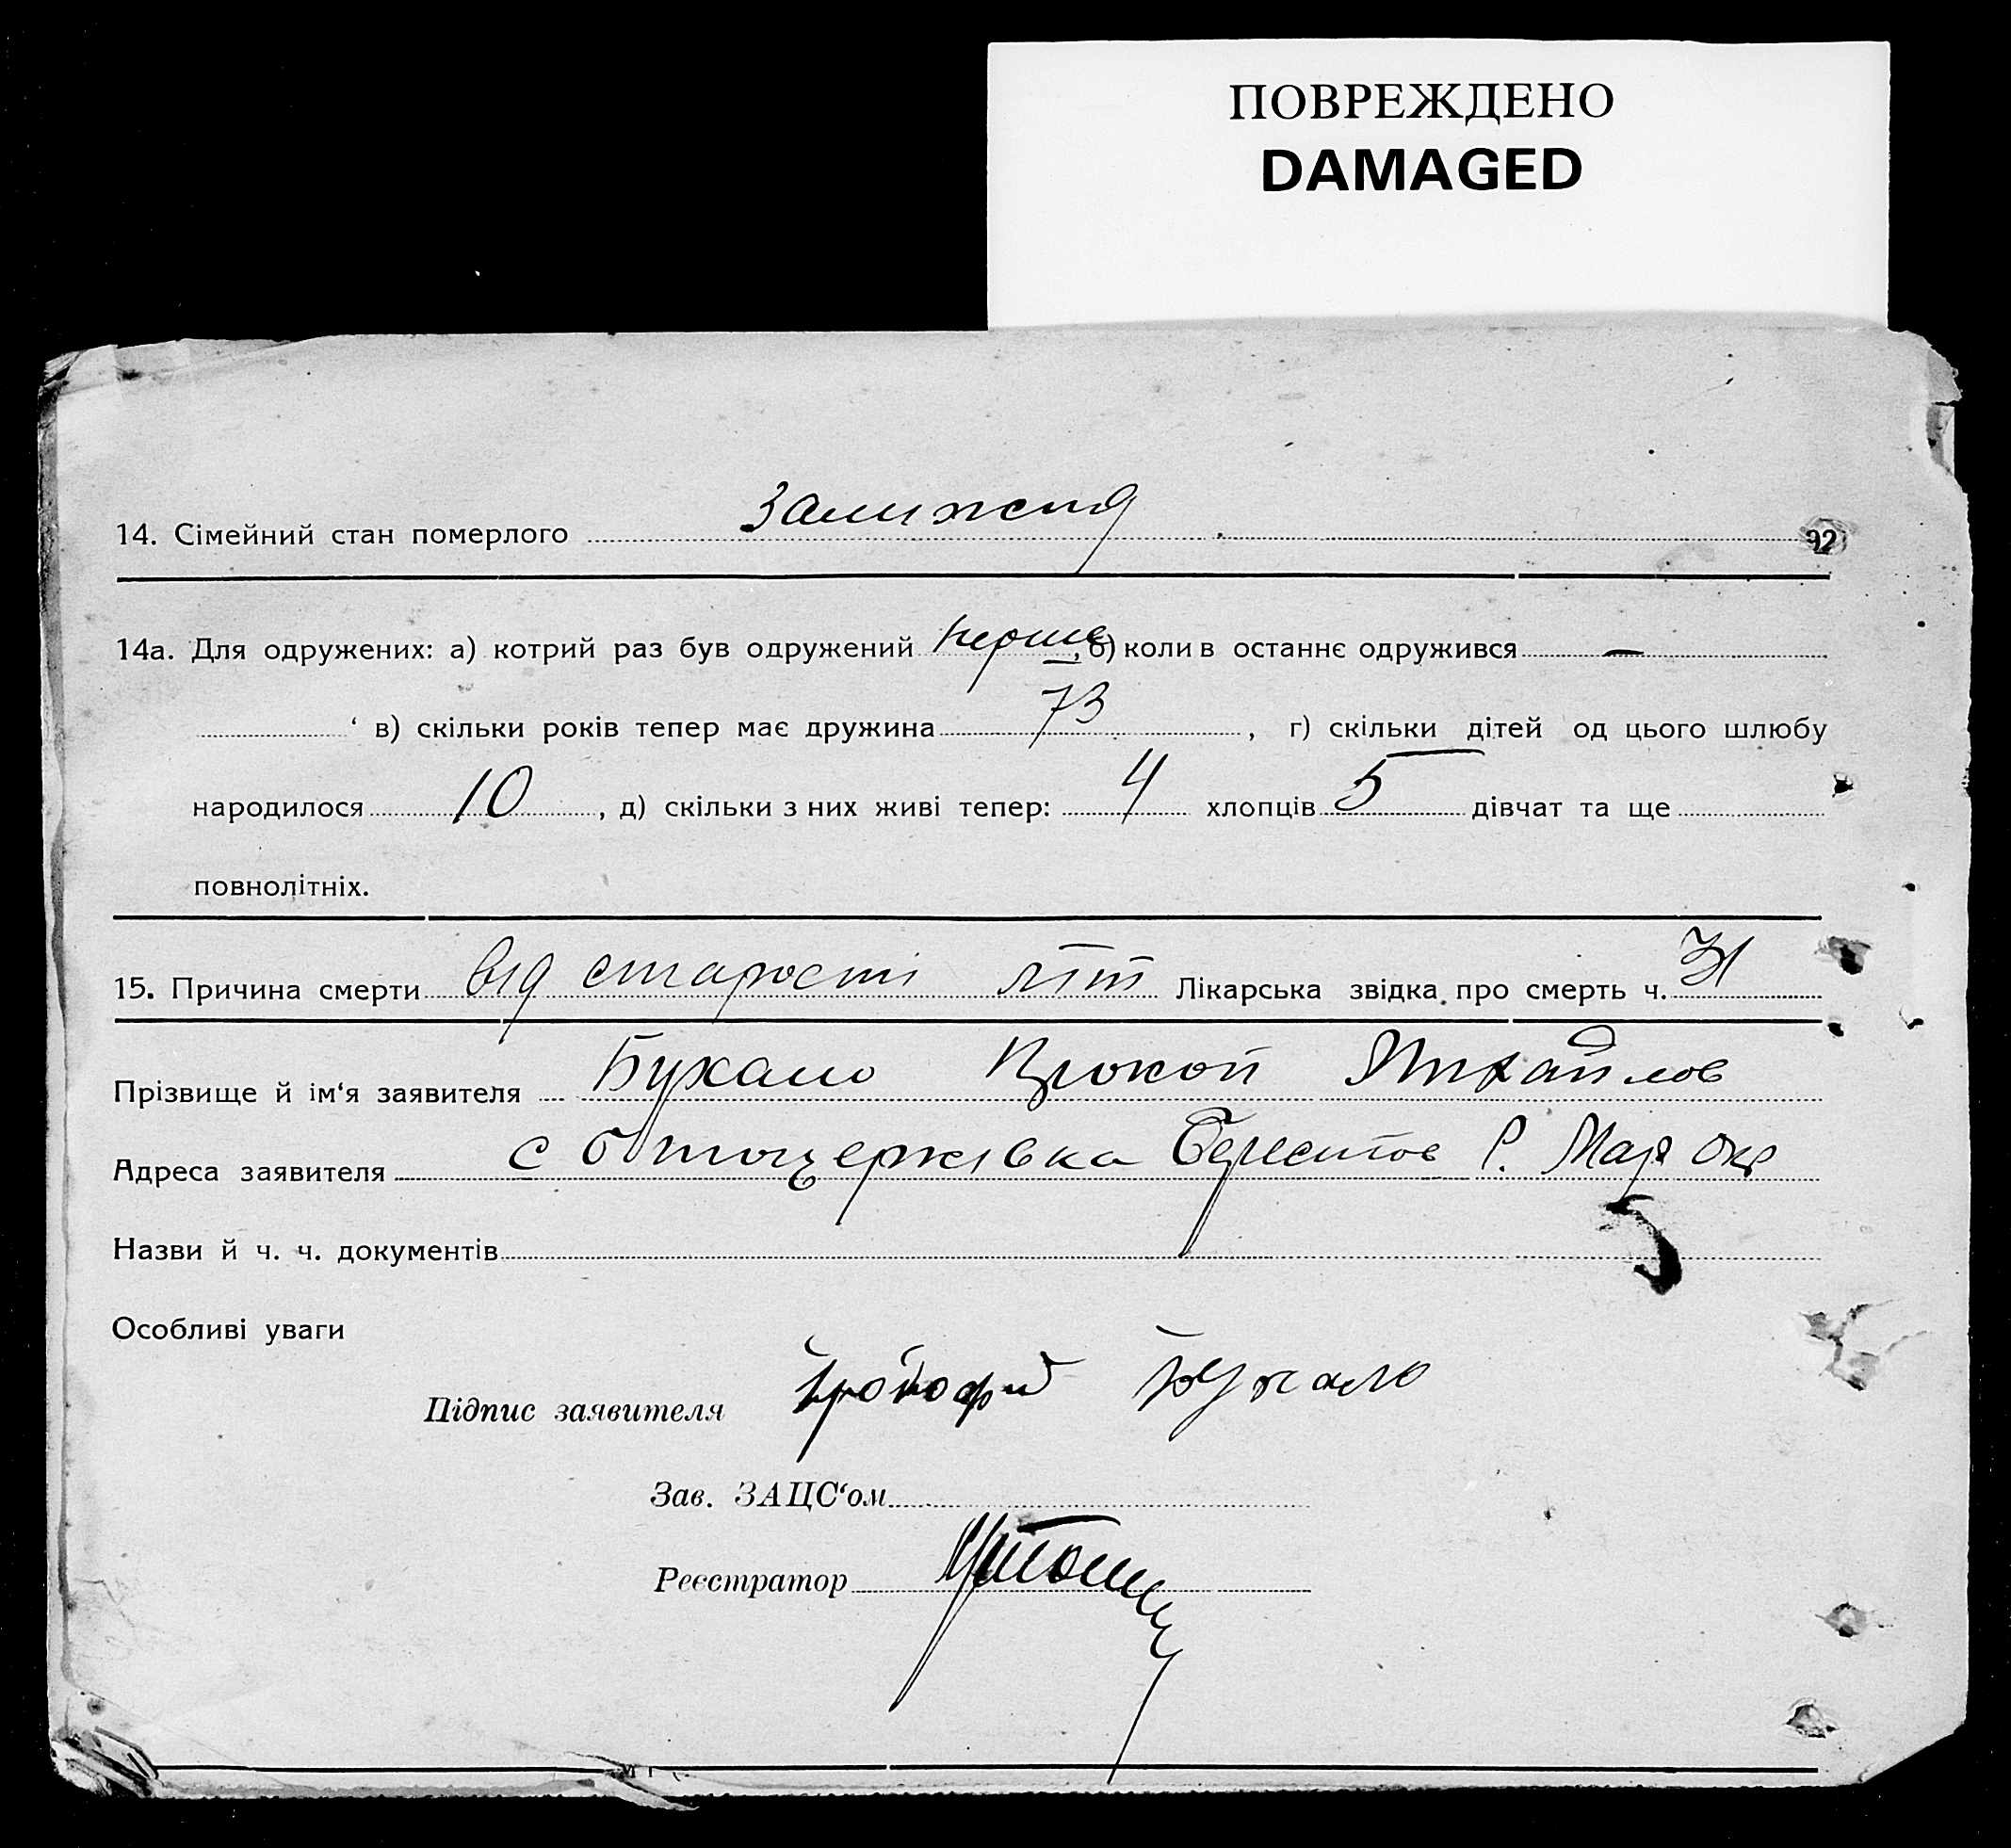 ПОВРЕЖДЕНО
DAMAGED
14. Сімейний стан померлого
92
14а. Для одружених: а) котрий раз був одружений перше, б) коли в останнє одружився —
в) скільки років тепер має дружина 73, г) скільки дітей од цього шлюбу
народилося 10, д) скільки з них живі тепер: 4 хлопців 5 дівчат та ще
повнолітніх.
15. Причина смерти від старості літ Лікарська звідка про смерть ч.
Прізвище й ім‘я заявителя Бухало Прокоп Михайлов
Адреса заявителя с Берестов Р. Мар Окр
Назви й ч. ч. документів
Особливі уваги
Підпис заявителя Прокофий Бухало
Зав. ЗАЦС‘ом
Реєстратор